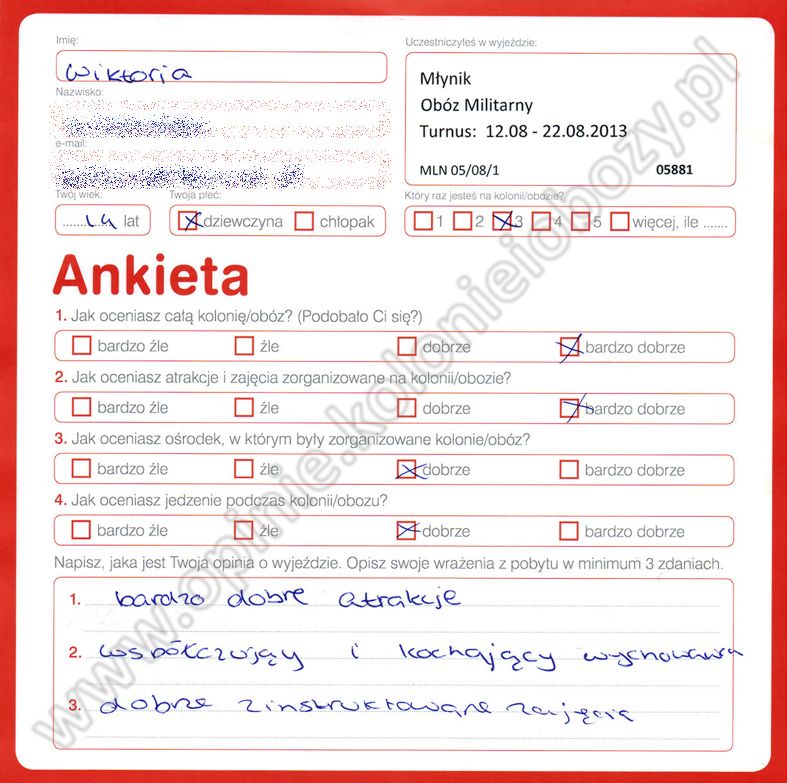 Imię:
Uczestniczyłeś w wyjeździe:
Wiktoria
Młynik
Obóz Militarny
Turnus: 12.08 - 22.08.2013
MLN 05/08/1 05881
Nazwisko:
e-mail:
Twój wiek:
Twoja płeć:
Który raz jesteś na kolonii/obozie?
14 lat
dziewczyna chłopak
1 2 3 4 5 więcej, ile .......
Ankieta
1. Jak oceniasz całą kolonię/obóz? (Podobało Ci się?)
bardzo źle źle dobrze bardzo dobrze
2. Jak oceniasz atrakcje i zajęcia zorganizowane na kolonii/obozie?
bardzo źle źle dobrze bardzo dobrze
3. Jak oceniasz ośrodek, w którym były zorganizowane kolonie/obóz?
bardzo źle źle dobrze bardzo dobrze
4. Jak oceniasz jedzenie podczas kolonii/obozu?
bardzo źle źle dobrze bardzo dobrze
Napisz, jaka jest Twoja opinia o wyjeździe. Opisz swoje wrażenia z pobytu w minimum 3 zdaniach.
1. bardzo dobre atrakcje
2. współczujący i kochający
3. dobrze zinstruktowane zajęcia
www.opinie.kolonieiobozy.pl